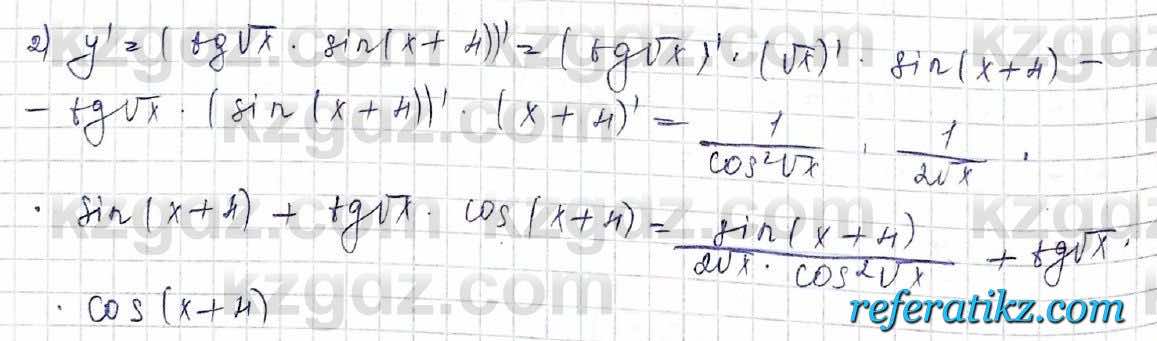 2) y' = (tg√x · sin(x+4))' = (tg√x)' · (√x)' · sin(x+4) −
− tg√x · (sin(x+4))' · (x+4)' = 1/(cos²√x) · 1/(2√x) ·
· sin(x+4) + tg√x · cos(x+4) = sin(x+4)/(2√x · cos²√x) + tg√x ·
· cos(x+4)
referatikz.com
kzgdz.com